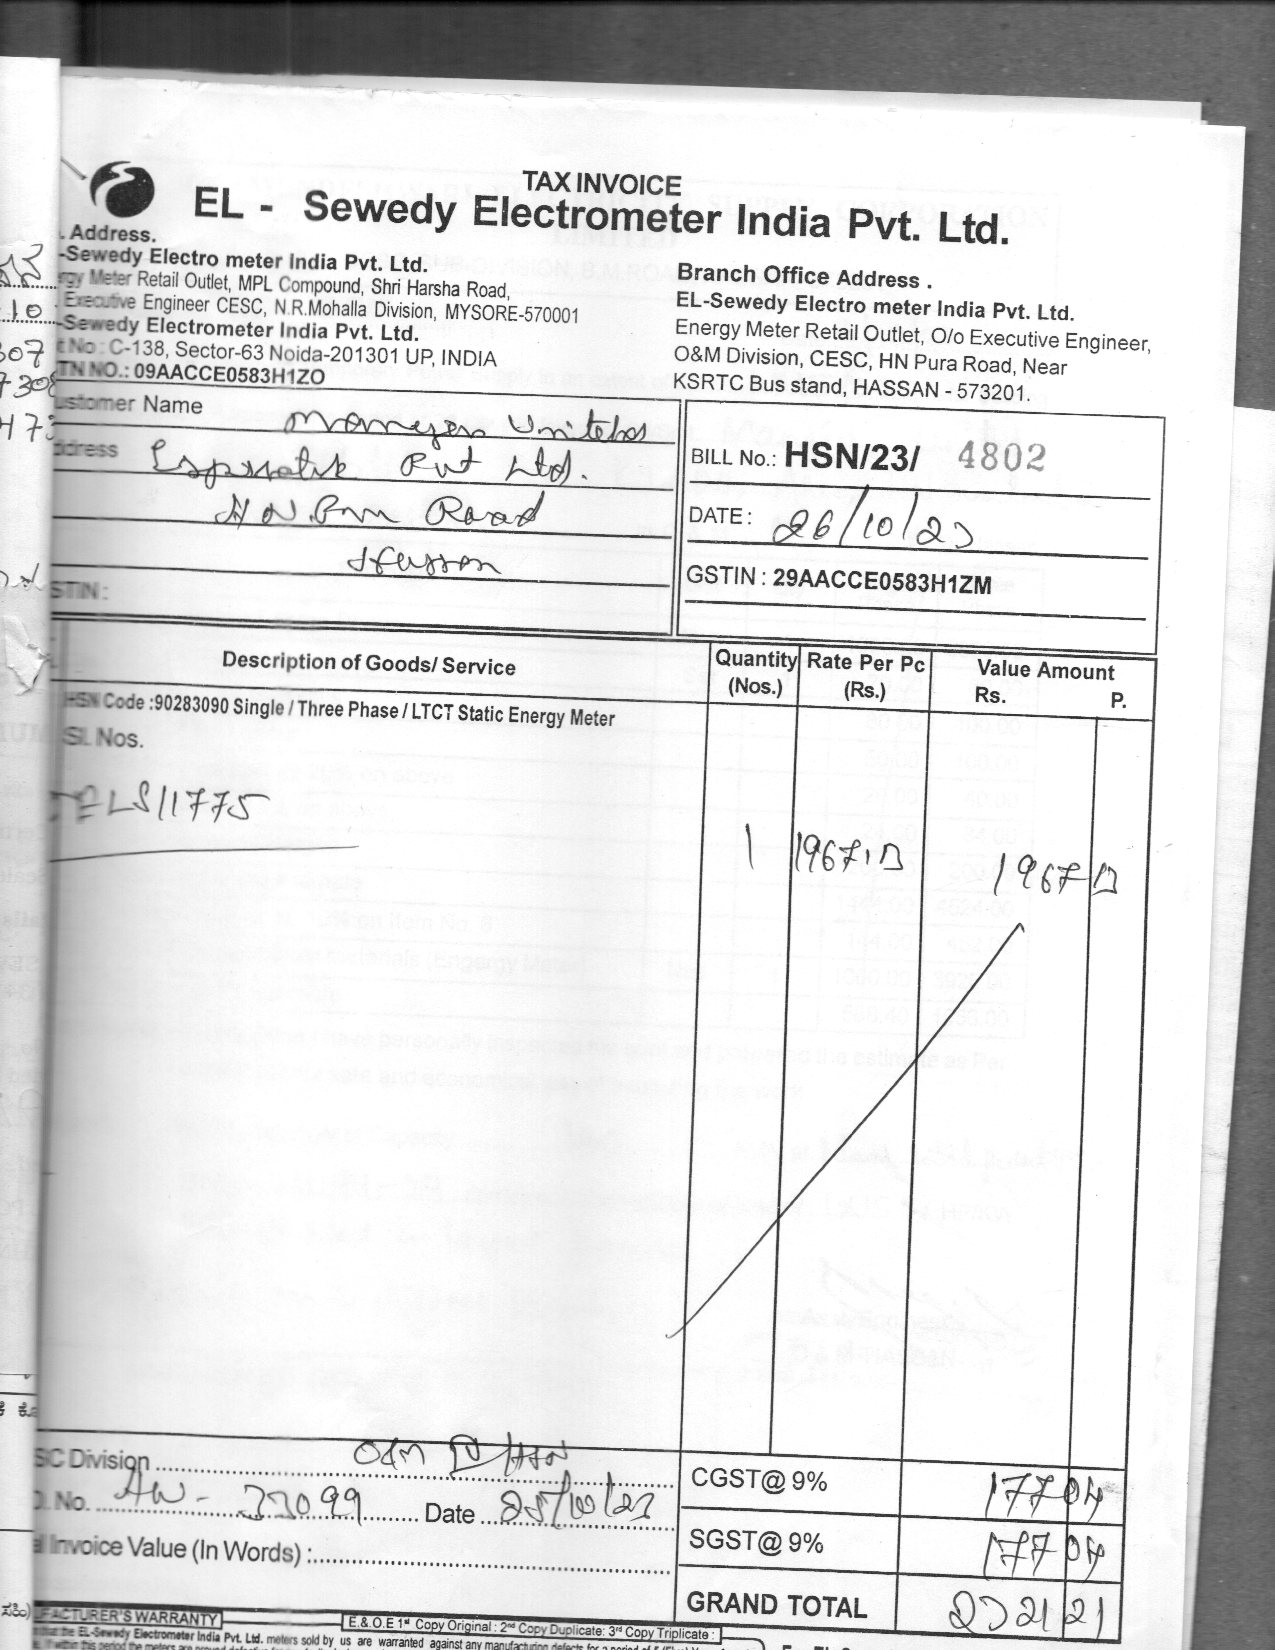 TAX INVOICE
EL - Sewedy Electrometer India Pvt. Ltd.
. Address.
-Sewedy Electro meter India Pvt. Ltd.
gy Meter Retail Outlet, MPL Compound, Shri Harsha Road,
Executive Engineer CESC, N.R.Mohalla Division, MYSORE-570001
-Sewedy Electrometer India Pvt. Ltd.
t No : C-138, Sector-63 Noida-201301 UP, INDIA
TN NO.: 09AACCE0583H1ZO
Branch Office Address .
EL-Sewedy Electro meter India Pvt. Ltd.
Energy Meter Retail Outlet, O/o Executive Engineer,
O&M Division, CESC, HN Pura Road, Near
KSRTC Bus stand, HASSAN - 573201.
ustomer Name
ddress Pvt Ltd.
Road
Hassan
STIN :
BILL No.: HSN/23/ 4802
DATE : 26/10/23
GSTIN : 29AACCE0583H1ZM
Description of Goods/ Service Quantity (Nos.) Rate Per Pc (Rs.) Value Amount Rs. P.
HSN Code :90283090 Single / Three Phase / LTCT Static Energy Meter
Sl. Nos.
LS11775
1 1967.13 1967 13
SC Division O&M D/HSN
. No. AW - 33099 Date 25/10/23
l Invoice Value (In Words) :
CGST@ 9% 177 04
SGST@ 9% 177 04
GRAND TOTAL 2321 21
UFACTURER'S WARRANTY
E.& O.E 1st Copy Original : 2nd Copy Duplicate: 3rd Copy Triplicate :
that the EL-Sewedy Electrometer India Pvt. Ltd. meters sold by us are warranted against any manufacturing defects for a period of 5